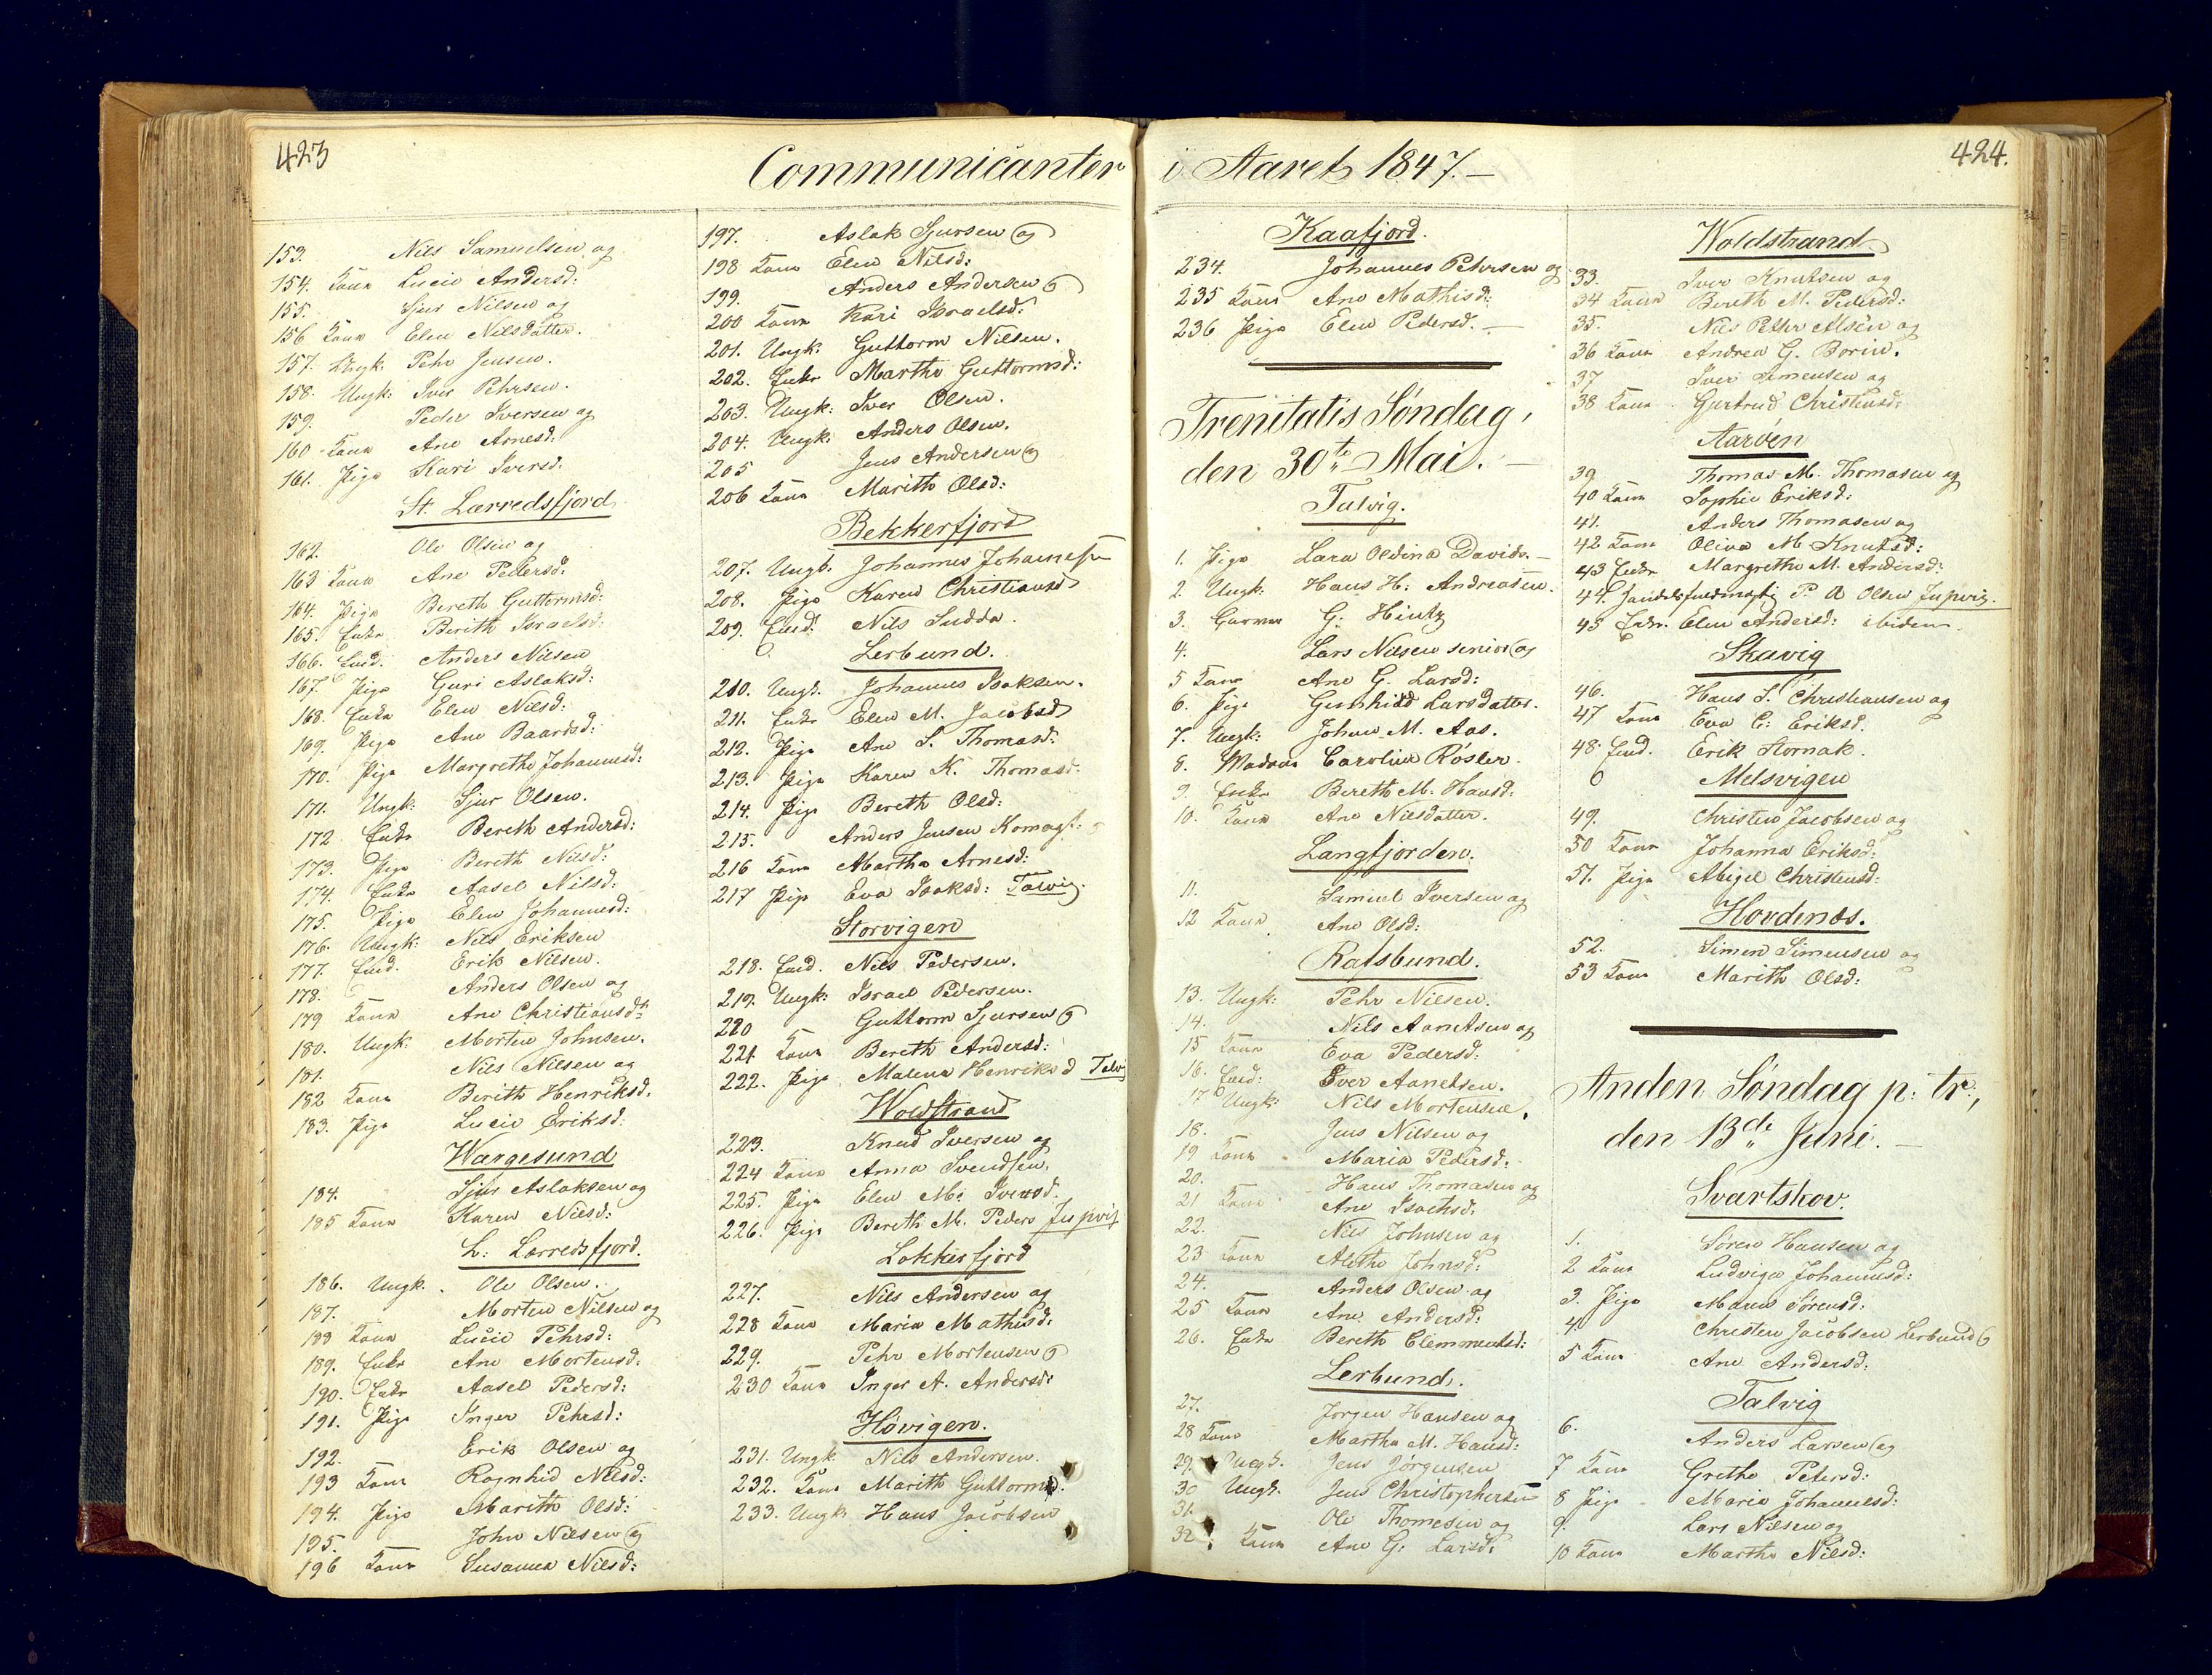 423
Communicanter
153. Nils Samuelsen og
154. Kone Lucie Andersd:
155. Sjur Nilsen og
156 Kone Elen Nilsdatter.
157. Ungk: Pehr Jensen.
158. Ungk: Iver Pehrsen.
159. Peder Iversen og
160 Kone Ane Arnesd:
161. Pige Kari Iversd.
St. Lærredsfjord
162. Ole Olsen og
163 Kone Ane Pedersd:
164. Pige Bereth Guttormsd:
165. Enke Berith Israelsd:
166. Eml. Anders Nilsen
167. Pige Guri Aslaksd:
168. Enke Elen Nilsd:
169. Pige Ane Baardsd:
170. Pige Margrethe Johannesd:
171. Ungk: Sjur Olsen.
172 Enke Bereth Andersd:
173. Pige Bereth Nilsd:
174. Enke Aasel Nilsd:
175. Pige Elen Johannesd:
176. Ungk: Nils Eriksen
177. Eml. Erik Nilsen.
178. Anders Olsen og
179 Kone Ane Christiansdt:
180. Ungk: Morten Johnsen.
181. Nils Nilsen og
182 Kone Berith Henriksd.
183. Pige Lucie Eriksd:
Wargesund
184. Sjur Aslaksen og
185 Kone Karen Nilsd:
L: Lærredsfjord.
186. Ungk. Ole Olsen.
187. Morten Nilsen og
188 Kone Lucie Pehrsd:
189. Enke Ane Mortensd:
190. Enke Aasel Pedersd:
191. Pige Inger Pehrsd:
192. Erik Olsen og
193 Kone Ragnhid Nilsd:
194. Pige Marith Olsd:
195. John Nilsen og
196 Kone Susanna Nilsd:
197. Aslak Sjursen og
198 Kone Elen Nilsd:
199. Anders Andersen og
200 Kone Kari Israelsd:
201. Ungk: Guttorm Nilsen.
202. Enke Marthe Guttormsd:
203. Ungk: Iver Olsen.
204. Ungk: Anders Olsen.
205 Jens Andersen og
206 Kone Marith Olsd:
Bekkerfjord
207. Ungk. Johannes Johannesen
208. Pige Karen Christiansd
209. Eml: Nils Sudda.
Lerbund.
210. Ungk. Johannes Isaksen.
211. Enke Elen M. Jacobsd
212. Pige Ane S. Thomasd:
213. Pige Karen K. Thomasd:
214. Pige Bereth Olsd:
215. Anders Jensen Komagf:
216 Kone Martha Arnesd:
217 Pige Eva Isaksd: Talvig.
Storvigen
218. Eml. Nils Pedersen.
219. Ungk: Israel Pedersen.
220 Guttorm Sjursen og
221. Kone Bereth Andersd:
222. Pige Malena Henriksd Talvig
Woldstrand
223. Knud Iversen og
224 Kone Anna Svendsen.
225. Pige Elen M: Iversd.
226. Pige Bereth M. Peders Jupvig
Lokkerfjord
227. Nils Andersen og
228 Kone Maria Mathisd:
229. Pehr Mortensen og
230 Kone Inger A. Andersd:
Høvigen.
231. Ungk Nils Andersen.
232. Kone Marith Guttormsd.
233. Ungk. Hans Jacobsen
i Aaret 1847.-
424.
Kaafjord.
234. Johannes Pehrsen og
235 Kone Ane Mathisd:
236 Pige Elen Pedersd. -
Trenitatis Søndag,
den 30te Mai. -
Talvig.
1. Pige Lara Oldina Davids. -
2. Ungk: Hans H: Andreasen.
3. Garver G: Hintz
4. Lars Nilsen senior og
5 Kone Ane G. Larsd:
6. Pige Gunhild Larsdatter.
7. Ungk: Johan M. Aas.
8. Madam Caroline Røsler.
9. Enke Bereth M. Hansd:
10. Kone Ane Nilsdatter.
Langfjorden.
11. Samuel Iversen og
12 Kone Ane Olsd:
Rafsbund.
13. Ungk: Pehr Nilsen.
14. Nils Aanetsen og
15 Kone Eva Pedersd:
16. Eml: Ever Aanetsen.
17 Ungk: Nils Mortensen.
18. Jens Nilsen og
19 Kone Maria Pedersd:
20. Hans Thomasen og
21 Kone Ane Isachsd:
22. Nils Johnsen og
23 Kone Alethe Johnsd:
24. Anders Olsen og
25 Kone Ane Andersd:
26. Enke Bereth Clemmentsd:
Lerbund.
27. Jørgen Hansen og
28 Kone Martha M. Hansd:
29. Ungk. Jens Jørgensen
30 Ungk. Jens Christophersen
31. Ole Thomesen og
32. Kone Ane G: Larsd.
Woldstrand
33. Iver Knutsen og
34 Kone Bereth M. Pedersd:
35. Nils Pether Alsén og
36 Kone Andrea G. Borin.
37 Iver Simensen og
38 Kone Gjertrud Christensd:
Aarøen
39 Thomas M. Thomasen og
40 Kone Sophie Eriksd:
41. Anders Thomasen og
42 Kone Oliva M. Knutsd:
43 Enke Margrethe M. Andersd:
44. Handelsfuldmægtig P. A Olsen Jupvig.
45 Enke. Elen Andersd: ibidem.
Skavig
46. Hans S. Christiansen og
47 Kone Eva C: Eriksd.
48. Eml. Erik Hornak.
Melsvigen
49. Christen Jacobsen og
50 Kone Johanna Eriksd:
51. Pige Abigel Christensd:
Hovdenæs.
52. Simon Simensen og
53 Kone Marith Olsd:
Anden Søndag p: tr.,
den 13de Juni. -
Svartskov.
1. Søren Hansen og
2 Kone Ludviga Johannesd:
3. Pige Maren Sørensd:
4. Christen Jacobsen Lerbund og
5 Kone Ane Andersd:
Talvig
6. Anders Larsen og
7 Kone Grethe Petersd:
8 Pige Maria Johannesd:
9. Lars Nilsen og
10 Kone Marthe Nilsd: